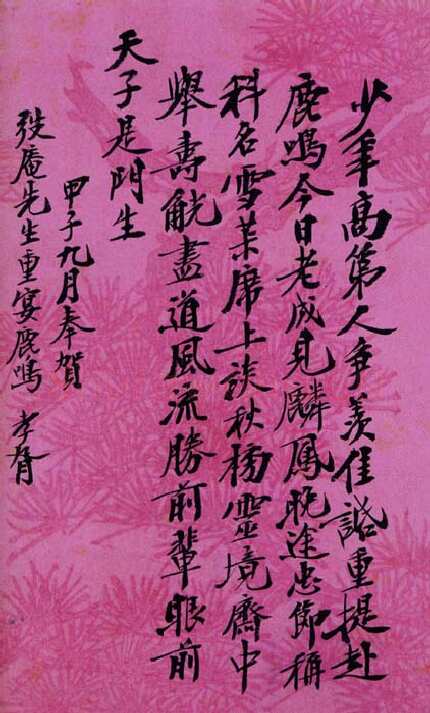 少年高第人爭羨佳話重提赴
鹿鳴今日老成見麟鳳晚途忠節稱
科名雪席上談秋靈境齋中
舉壽觥盡道風流勝前輩眼前
天子是門生
甲子九月奉賀
弢庵先生重宴鹿鳴 孝胥